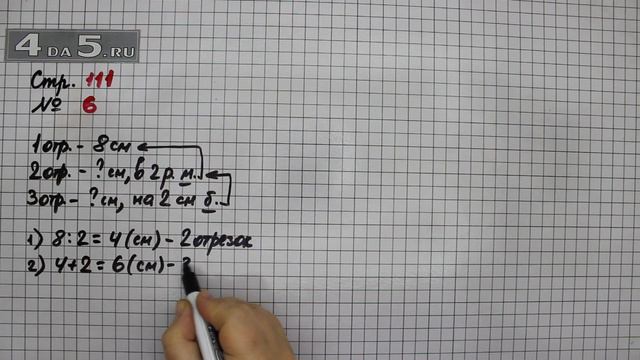 4 DA 5.RU
Стр. 111
№ 6
1 отр. - 8 см
2 отр. - ? см, в 2 р. м.
3 отр. - ? см, на 2 см б.
1) 8 : 2 = 4 (см) - 2 отрезок
2) 4 + 2 = 6 (см) -